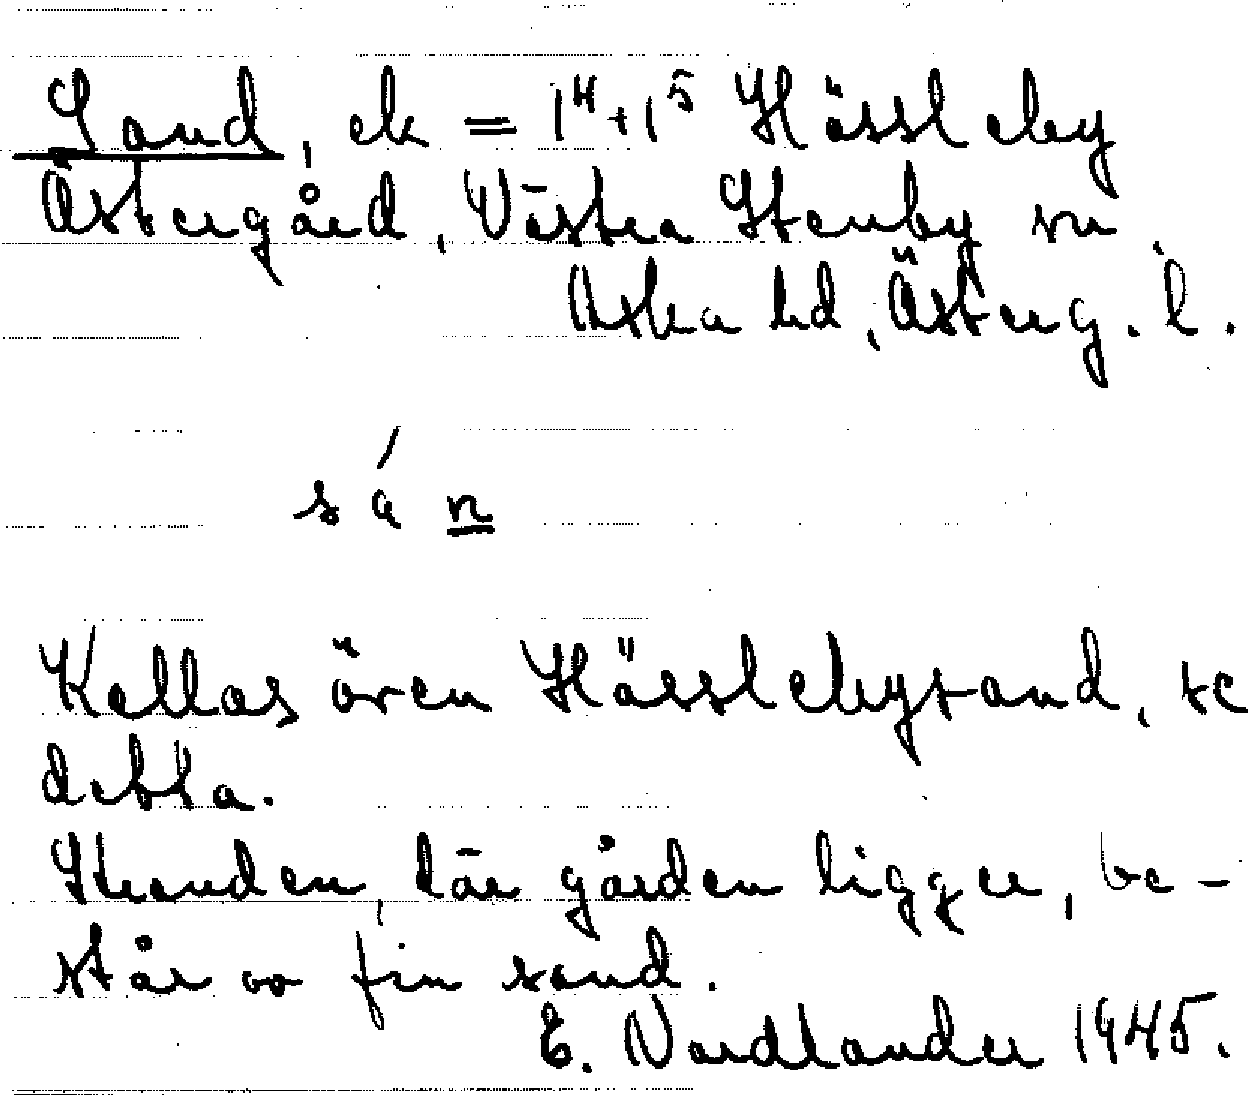 Sand, ek = 1⁴+1⁵ Hässleby
Östergård, Västra Stenby sn
Aska hd, Österg. l.
sá n
Kallas även Hässlebysand, se
detta.
Stranden, där gården ligger, be-
står av fin sand.
E. Nordlander 1945.